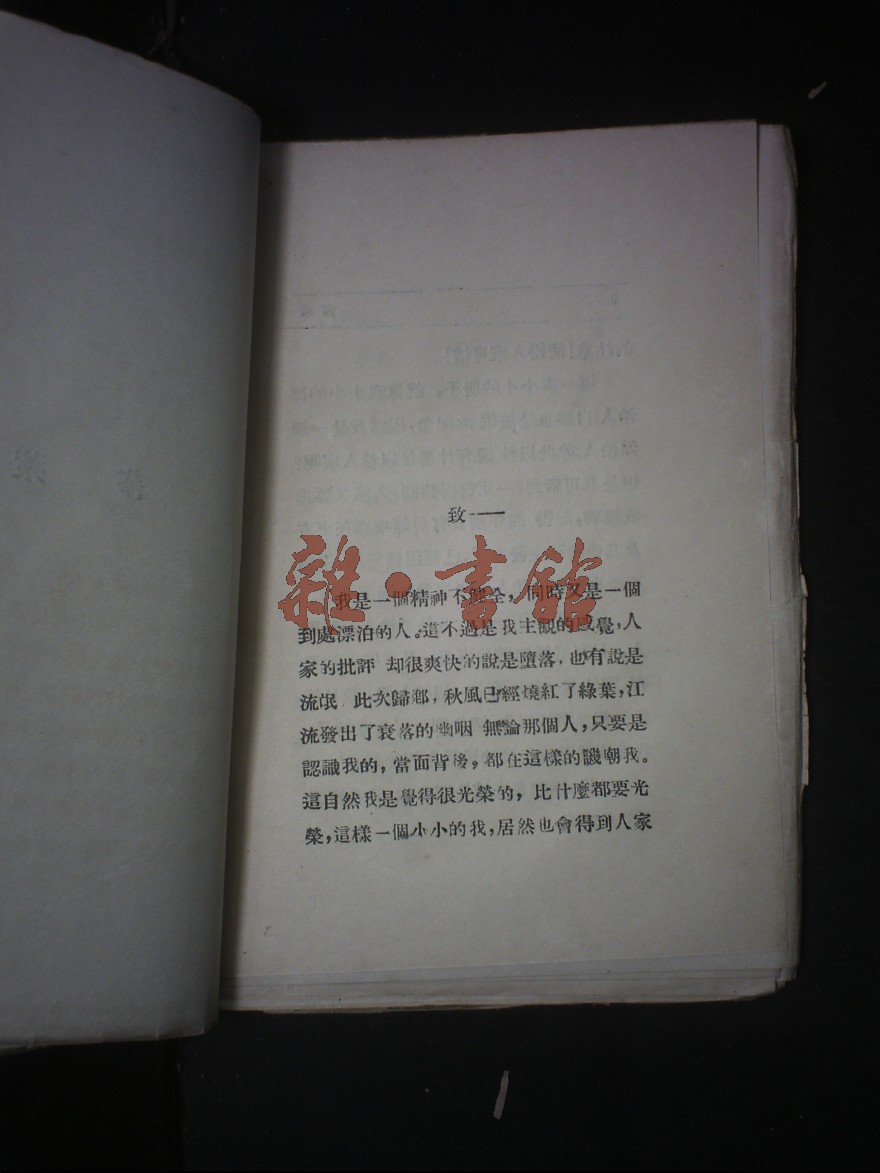 致——
雜·書館
我是一個精神不健全，同時又是一個
到處漂泊的人。這不過是我主觀的感覺，人
家的批評 却很爽快的說是墮落，也有說是
流氓 此次歸鄉，秋風已經燒紅了綠葉，江
流發出了衰落的幽咽 無論那個人，只要是
認識我的，當面背後，都在這樣的譏嘲我。
這自然我是覺得很光榮的，比什麼都要光
榮，這樣一個小小的我，居然也會得到人家